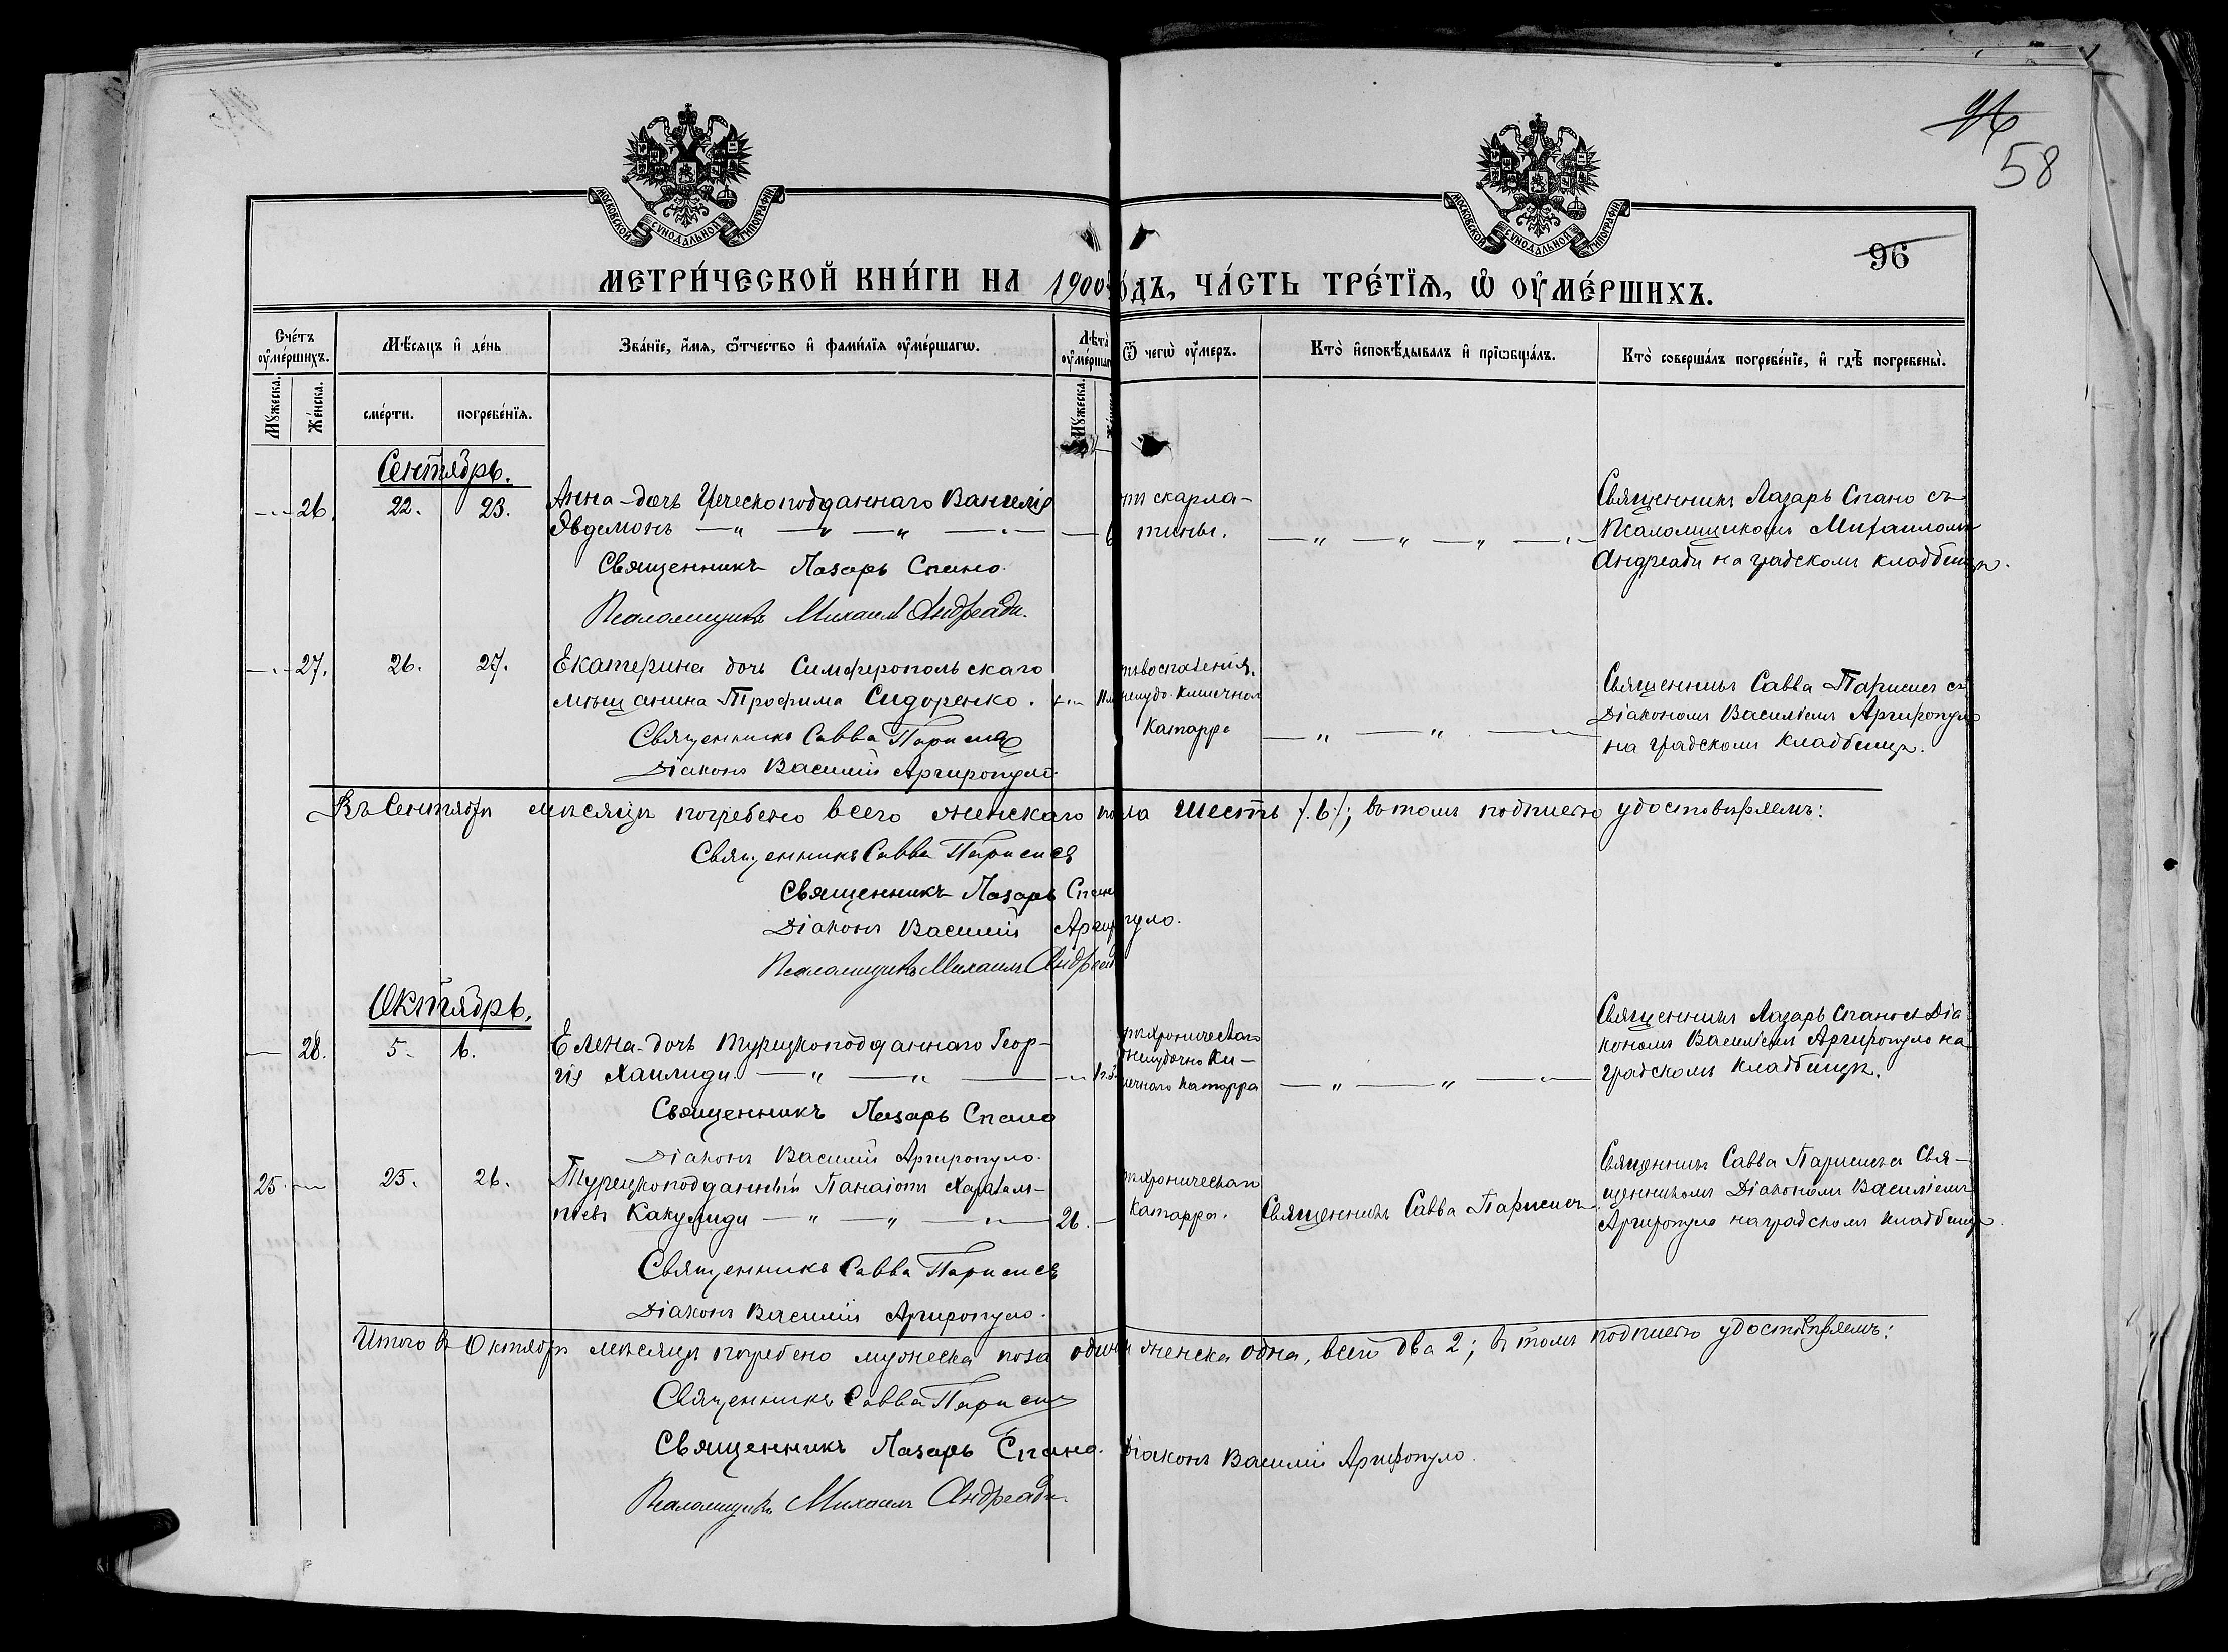 96
58
МОСКОВСКОЙ СѴНОДАЛЬНОЙ ТИПОГРАФІИ
МОСКОВСКОЙ СѴНОДАЛЬНОЙ ТИПОГРАФІИ
96
МЕТРИ́ЧЕСКОЙ КНИ́ГИ НА 1900 го́дъ, ЧА́СТЬ ТРЕ́ТЇѦ, Ѡ҆ ОУ҆МЕ́РШИХЪ.
Сче́тъ оу҆ме́ршихъ.
Мѣ́сяцъ и҆ де́нь
Зва́нїе, и҆́мя, ѻ҆́тчество и҆ фами́лїя оу҆ме́ршагѡ.
Лѣ̀та оу҆ме́ршаг
Ѿ чегѡ̀ оу҆́меръ.
Кто̀ и҆сповѣ́дывалъ и҆ прїѡбща́лъ.
Кто̀ соверша́лъ погребе́нїе, и҆ гдѣ̀ погребены̀.
Мꙋ́жеска.
Же́нска.
сме́рти.
погребе́нїя.
Мꙋ́жеска.
Сентябрь.
26. 22. 23. Анна-дочь Греческоподданнаго Вангелія
Евдемонъ
Священникъ Лазарь Спано.
Псаломщикъ Михаил Андреади.
отъ скарла-
тины.
Священникъ Лазарь Спано съ
Псаломщикомъ Михаиломъ
Андреади на градскомъ кладбищѣ.
27. 26. 27. Екатерина дочь Симферопольскаго
мѣщанина Трофима Сидоренко.
Священникъ Савва Парисиевъ
Діаконъ Василій Аргиропуло.
желудо-кишечнаго
Катарра
Священникъ Савва Парисиевъ съ
Діакономъ Василіемъ Аргиропуло
на градскомъ кладбищѣ.
Въ Сентябрѣ мѣсяцѣ погребено всего женскаго пола шесть /.6./; въ томъ подписью удостовѣряемъ:
Священникъ Савва Парисиевъ
Священникъ Лазарь Спано
Діаконъ Василій Аргиропуло.
Псаломщикъ Михаилъ Андреади
Октябрь.
28. 5. 6. Елена-дочь турецкоподданнаго Геор-
гія Хаилиди
Священникъ Лазарь Спано
Діаконъ Василій Аргиропуло.
отъ хроническаго
желудочно Ки-
шечнаго катарра
Священникъ Лазарь Спано съ Діа-
кономъ Василіемъ Аргиропуло на
градскомъ кладбищѣ.
25. 25. 26. Турецкоподданный Панаіотъ Харалам-
піевъ Какулиди 26.
Священникъ Савва Парисиевъ
Діаконъ Василій Аргиропуло.
отъ хроническаго
катарра.
Священникъ Савва Парисиевъ
Священникъ Савва Парисиевъ съ Свя-
щенникомъ Діакономъ Василіемъ
Аргиропуло на градскомъ кладбищѣ.
Итого въ Октябрѣ мѣсяцѣ погребено мужеска пола одинъ женска одна, всего два 2; въ томъ подписью удостовѣряемъ:
Священникъ Савва Парисиевъ
Священникъ Лазарь Спано. Діаконъ Василій Аргиропуло.
Псаломщикъ Михаилъ Андреади.